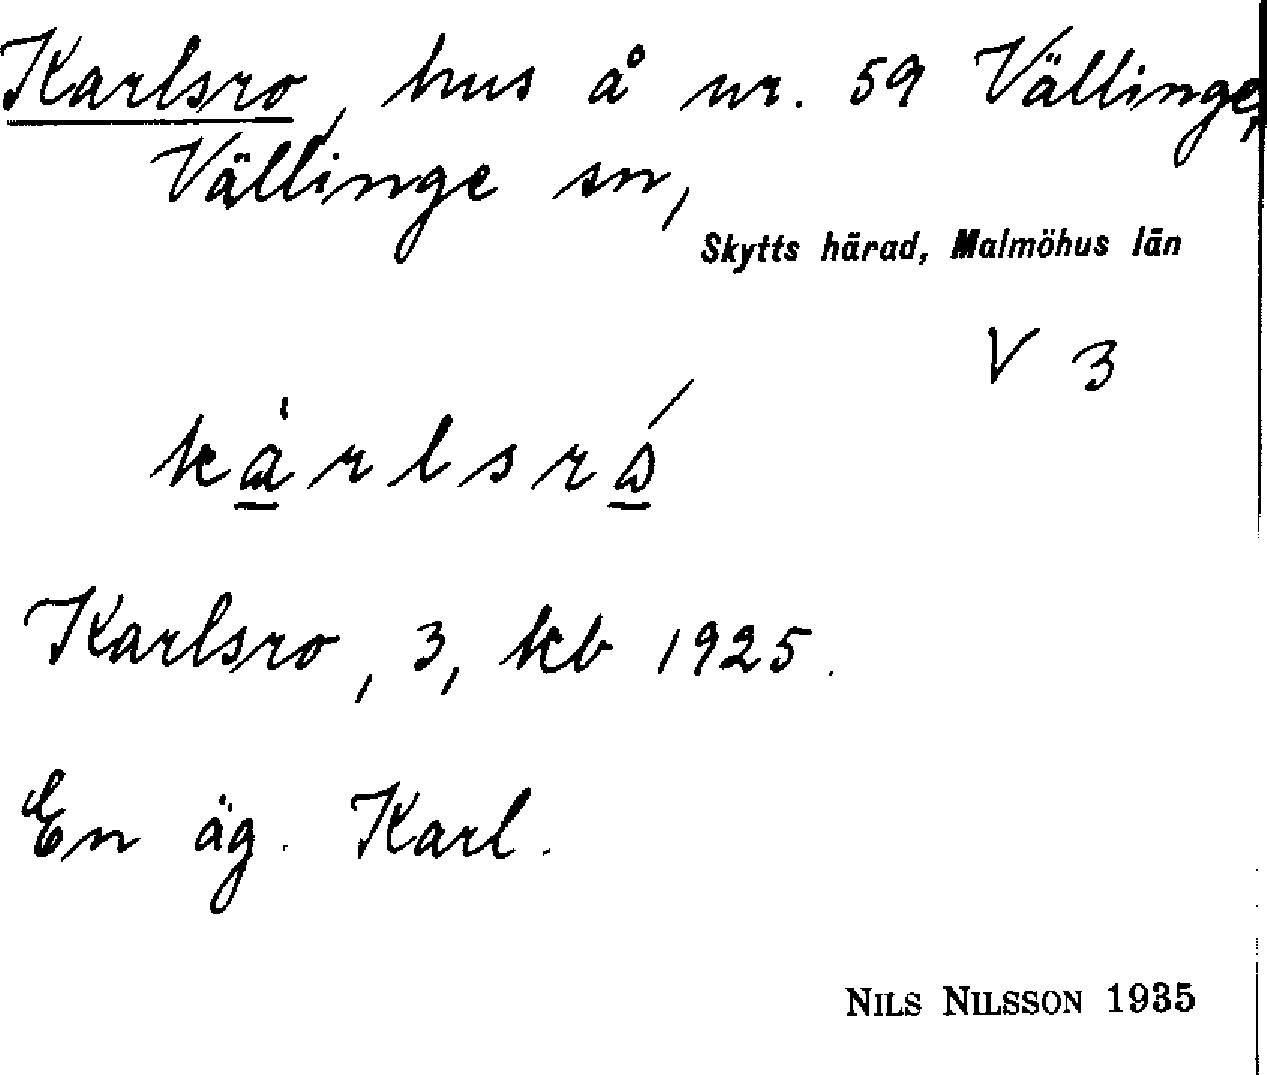 Karlsro, hus å nr. 59 Vällinge,
Vällinge sn,
Skytts härad, Malmöhus län
V 3
Karlsro, 3, kb 1925.
En äg. Karl.
NILS NILSSON 1935